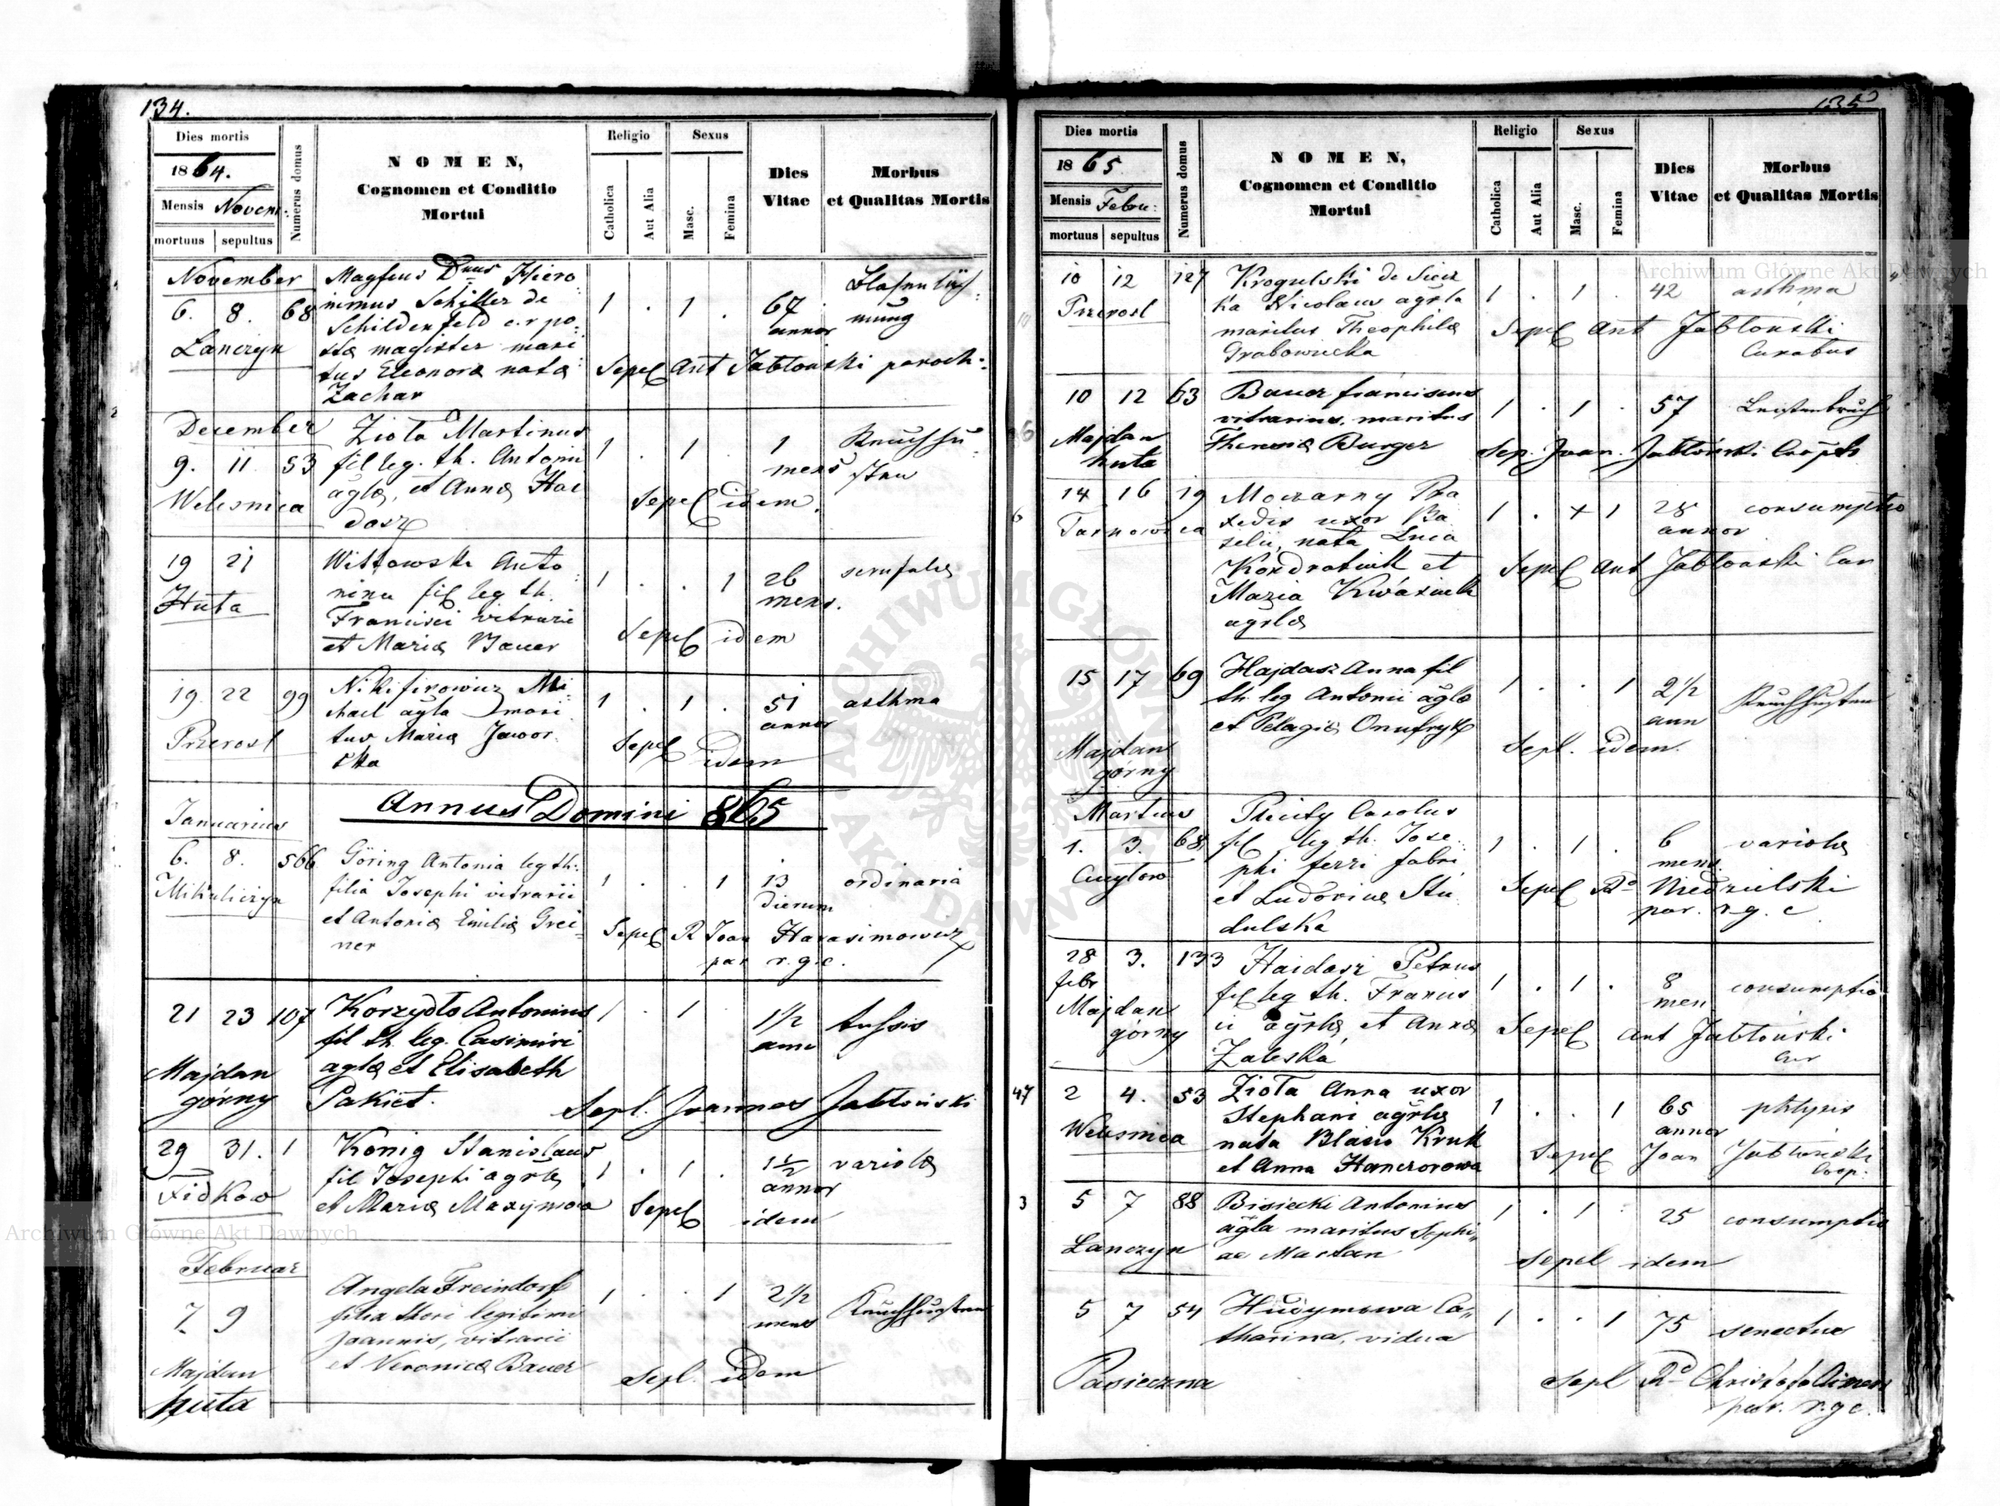 134.
Dies mortis
1864.
Mensis Novem:
mortuus sepultus
Numerus domus
NOMEN,
Cognomen et Conditio
Mortui
Religio
Catholica
Aut Alia
Sexus
Masc.
Femina
Dies
Vitae
Morbus
et Qualitas Mortis
November
6. 8. 68
Lanczyn
Magfcus Dnus Hiero
nimus Schiller de
Schildenfeld c.r po-
stæ magister mari
tus Eleonoræ natæ
Zachar
1 . 1 . 67
annor
Sepel Ant Jabłoński paroch:
December
9. 11. 53
Welesnica
Ziota Martinus
fil leg. th. Antonii
agłæ, et Annæ Hai
dasz
1 . 1 . 1
mens
Sepel idem.
19 21
Huta
Witkowska Anto
nina fil leg th.
Francisci vitrarii
et Mariæ Bauer
1 . . 1 26
mens.
Sepel idem
19. 22 99
Przerosl
Nikifirowicz Mi-
chael agła mari
tus Mariæ Jawor
ska
1 . 1 . 51
annor
asthma
Sepel idem
Annus Domini 865
Januarius
6. 8. 566
Mikuliczyn
Göring Antonia leg th.
filia Josephi vitrarii
et Antoniæ Emiliæ Grei-
ner
1 . . 1 13
dierum
ordinaria
Sepel R Joan Harasimowicz
par r.g.c.
21 23 107
Majdan
górny
Korzydło Antonius
fil th. leg. Casimiri
agłæ et Elisabeth
Pakiet.
1 . 1 . 1½
anni
tussis
Sepl. Joannes Jabłoński
29 31. 1
Fidkow
König Stanislaus
fil Josephi agrlæ
et Mariæ Maxymowa
1 . 1 . 1½
annor
variolæ
Sepel idem
Februar
7. 9
Majdan
huta
Angela Freindorf
filia thori legitimi
Joannis, vitrarii
et Veronicæ Bauer
1 . . 1 2½
mens
Keuchhusten
Sepl. idem
135
Dies mortis
1865.
Mensis Febru:
mortuus sepultus
Numerus domus
NOMEN,
Cognomen et Conditio
Mortui
Religio
Catholica
Aut Alia
Sexus
Masc.
Femina
Dies
Vitae
Morbus
et Qualitas Mortis
10 12 127
Przerosl
Krogulski de Siecz
ka Nicolaus agrla
maritus Theophilæ
Grabowiecka
1 . 1 . 42
asthma
Sepel Ant Jabłoński
Curatus
10 12 63
Majdan
huta
Bauer Franciscus
vitrarius, maritus
Theresiæ Burger
1 . 1 . 57
Leistenbruch
Sep. Joan. Jabłoński Coopts
14 16 19
Tarnowica
Moczarny Pra
xedis uxor Ba
silii, nata Luca
Kondratiuk et
Maria Kwasiuk
agrlæ
1 . + 1 28
annor
consumptio
Sepel Ant Jabłoński Cur
15 17 69
Majdan
górny
Hajdasz Anna fil
th. leg Antonii agłæ
et Pelagiæ Onufryk
1 . . 1 2½
ann
Keuchhusten
Sepl. idem.
Martius
1. 3. 68
Cucyłow
Carolus
fil leg th. Jose-
phi ferri fabri
et Ludovicæ Stu
dulska
1 . 1 . 6
mens
variolæ
Sepel Rd Niedzielski
par. r.g.c.
28 3. 133
febr
Majdan
górny
Haidasz Petrus
fil leg th. Francis
ci agrlæ et Annæ
Zaleska
1 . 1 . 8
men
consumptio
Sepel Ant Jabłoński
Cur
2 4. 53
Welesnica
Ziota Anna uxor
Stephani agrlæ
nata Blasio Kruk
et Anna Hanczorowa
1 . . 1 65
annor
phtysis
Sepel Joan Jabłoński
Coop.
5 7 88
Lanczyn
Bisiecki Antonius
agła maritus Sophi-
ae Marlan
1 . 1 . 25
consumptio
Sepel idem
5 7 54
Pasieczna
Hudymowa Ca-
tharina, vidua
1 . . 1 75
senectus
Sepl Rd
par. r.g.c.
Archiwum Główne Akt Dawnych
Archiwum Główne Akt Dawnych
ARCHIWUM GŁÓWNE AKT DAWNYCH